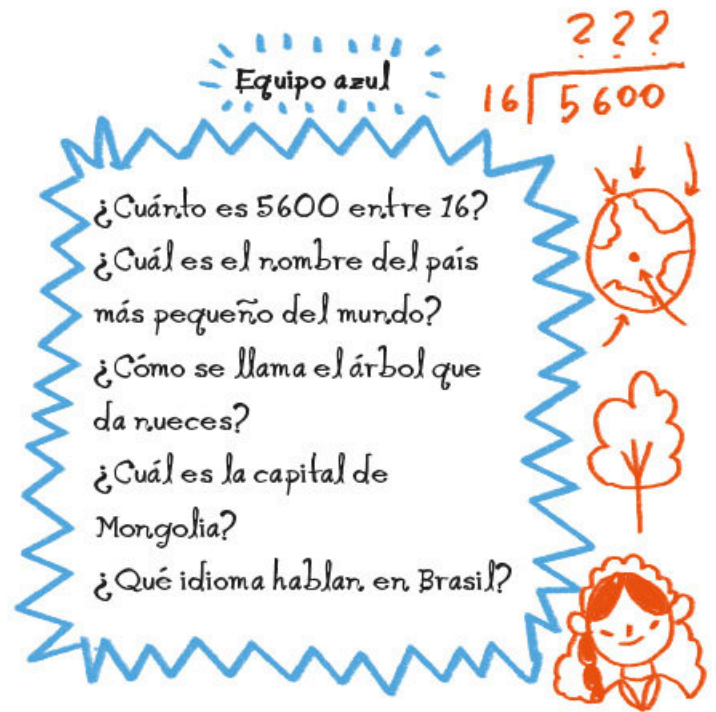 Equipo azul
? ? ?
16 5600
¿Cuánto es 5600 entre 16?
¿Cuál es el nombre del país
más pequeño del mundo?
¿Cómo se llama el árbol que
da nueces?
¿Cuál es la capital de
Mongolia?
¿Qué idioma hablan en Brasil?